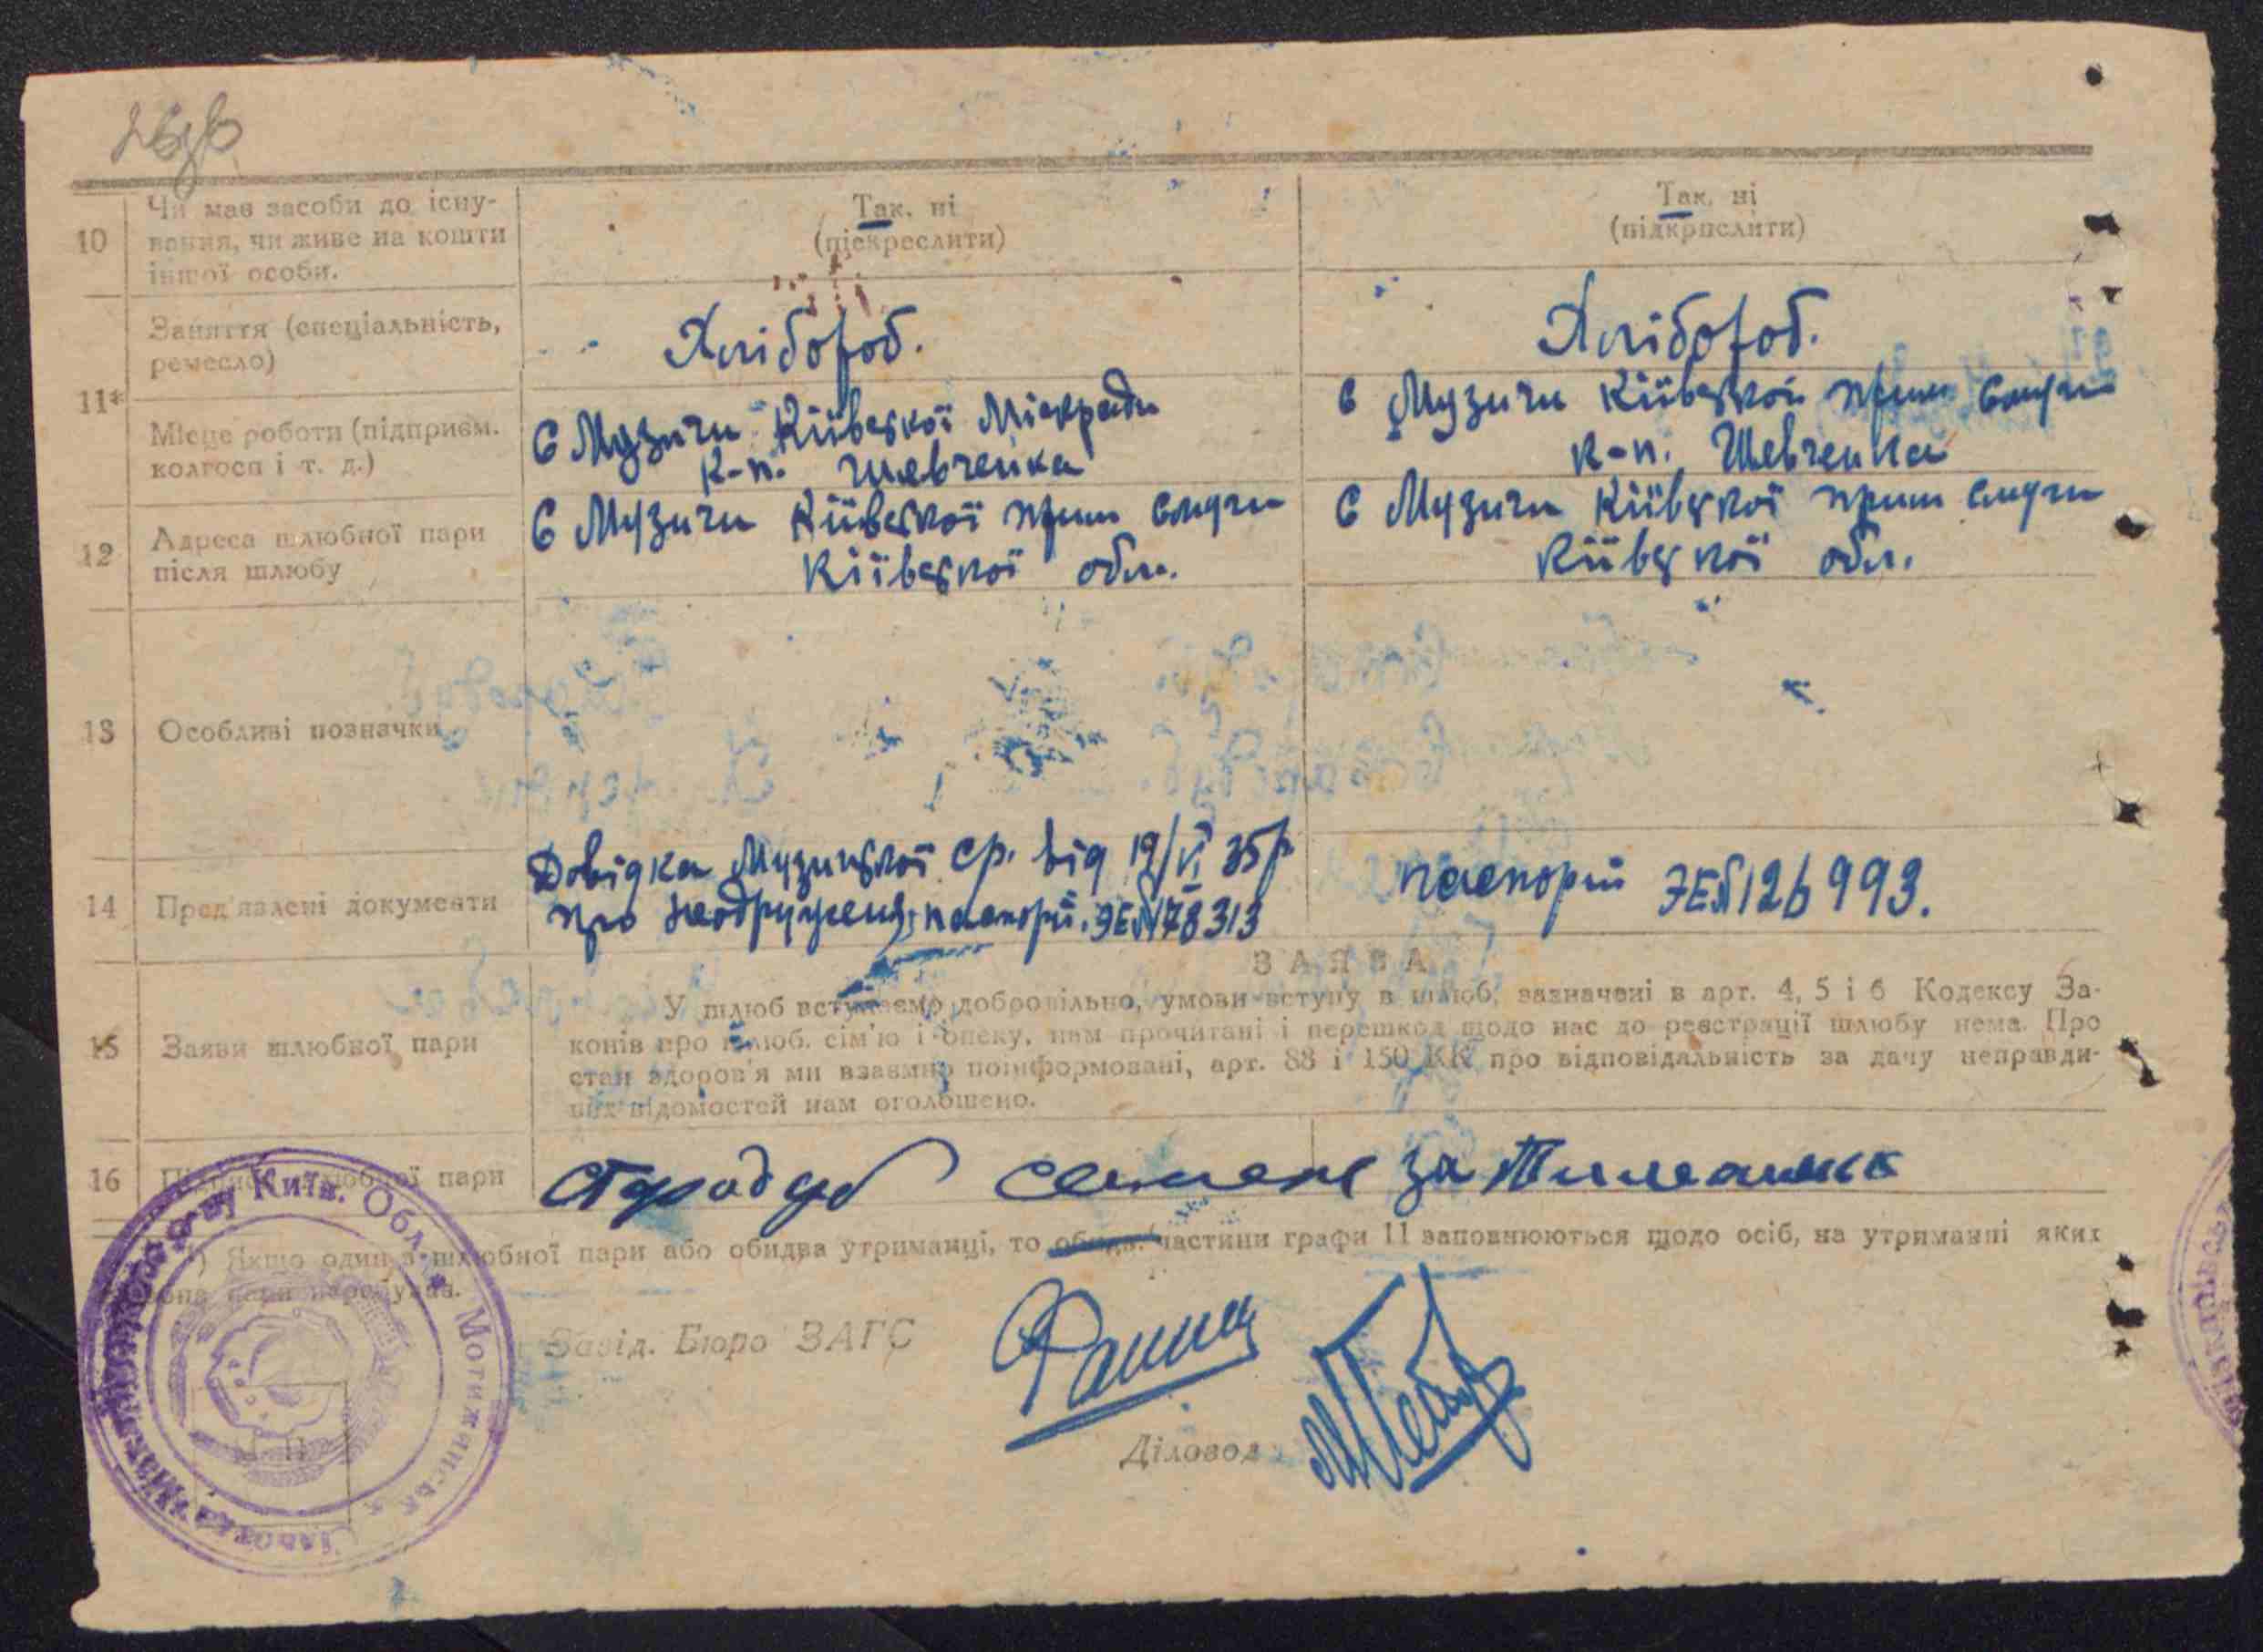 10
Чи має засоби до існу-
вання, чи живе на кошти
іншої особи.
Так, ні
(підкреслити)
Так, ні
(підкрпслити)
11*
Заняття (спеціальність,
ремесло)
Хлібороб.
Хлібороб.
Місце роботи (підприєм.
колгосп і т. д.)
С Музичи Київської Міскради
к-п. Шевченка
С Музичи Київської прим смуги
к-п. Шевченка
12
Адреса шлюбної пари
після шлюбу
С Музичи Київської прим смуги
Київської обл.
С Музичи Київської прим смуги
Київської обл.
13
Особливі позначки
14
Пред'явлені документи
Довідка Музицької ср. від 19/VI 35р
про неодруження, паспорт. ЭЕ№178313
паспорт ЭЕ№126993.
15
Заяви шлюбної пари
ЗАЯВА
У шлюб вступаємо добровільно, умови вступу в шлюб, зазначені в арт. 4, 5 і 6 Кодексу За-
конів про шлюб. сім'ю і опеку, нам прочитані і перешкод щодо нас до реєстрації шлюбу нема. Про
стан здоров'я ми взаємно поінформовані, арт. 88 і 150 КК про відповідальність за дачу неправди-
вих відомостей нам оголошено.
16
Підписи шлюбної пари
Стародуб за
*) Якщо один з шлюбної пари або обидва утриманці, то обидві частини графи 11 заповнюються щодо осіб, на утриманні яких
Завід. Бюро ЗАГС
Діловод
М. П.
Київ. Обл. Мотижинськ